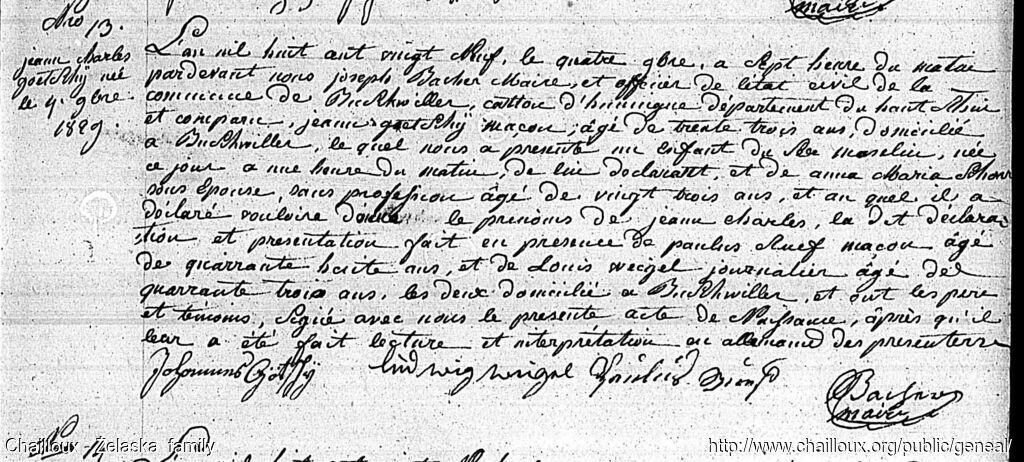 Nro 13.
jeann charles
goetschÿ née
le 4. 9bre
1829.
L'an mil huit ant vingt Neuf, le quatre 9bre, a Sept heure du matin
pardevant nous joseph Bacher Maire, et officier de l'état civil de la
commune de Buschwiller, cantton d'huningue département du haut Rhin
et comparu, jeann goetschÿ macon, âgé de trente trois ans, domicilié
a Buschwiller, le quel nous a presente un Enfant du Sexe masclin, née
ce jour a une heure du matin, de lui declarant, et de anna Maria
sous Epouse, sans profession âgé de vingt trois ans, et au quel il a
declaré vouloire donné le prenoms de jeann Charles, la dit déclara-
tion et presentation fait en presence de paulus Ruef macon âgé
de quarrante huite ans, et de Louis weigel journalier âgé de
quarrante trois ans, les deux domicilié a Buschwiller, et ont les pere
et temoins, Signé avec nous le presente acte de Naissance, âprès qu'il
leur a été fait lecture et interprétation en allemand des presenterre
Johannes Götschy Ludwig weigel Paulus
Bacher
maire
No 14
Chailloux - Zelaska family
http://www.chailloux.org/public/geneal/